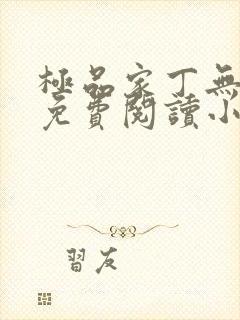 極品家丁無
免費閱讀小
習友